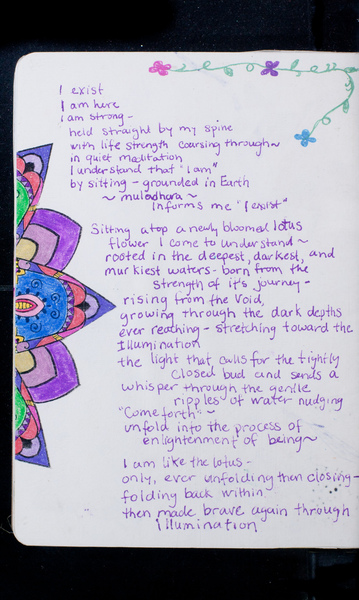 I exist
I am here
I am strong -
held straight by my spine
with life strength coursing through~
in quiet meditation
I understand that "I am"
by sitting - grounded in Earth
~ muladhara ~
Informs me "I exist"
Sitting atop a newly bloomed lotus
flower I come to understand ~
rooted in the deepest, darkest, and
murkiest waters - born from the
strength of it's journey -
rising from the Void,
growing through the dark depths
ever reaching - stretching toward the
Illumination
the light that calls for the tightly
closed bud and sends a
whisper through the gentle
ripples of water nudging
"Come forth" ~
unfold into the process of
enlightenment of being~
I am like the lotus -
only, ever unfolding then closing -
folding back within -
then made brave again through
Illumination